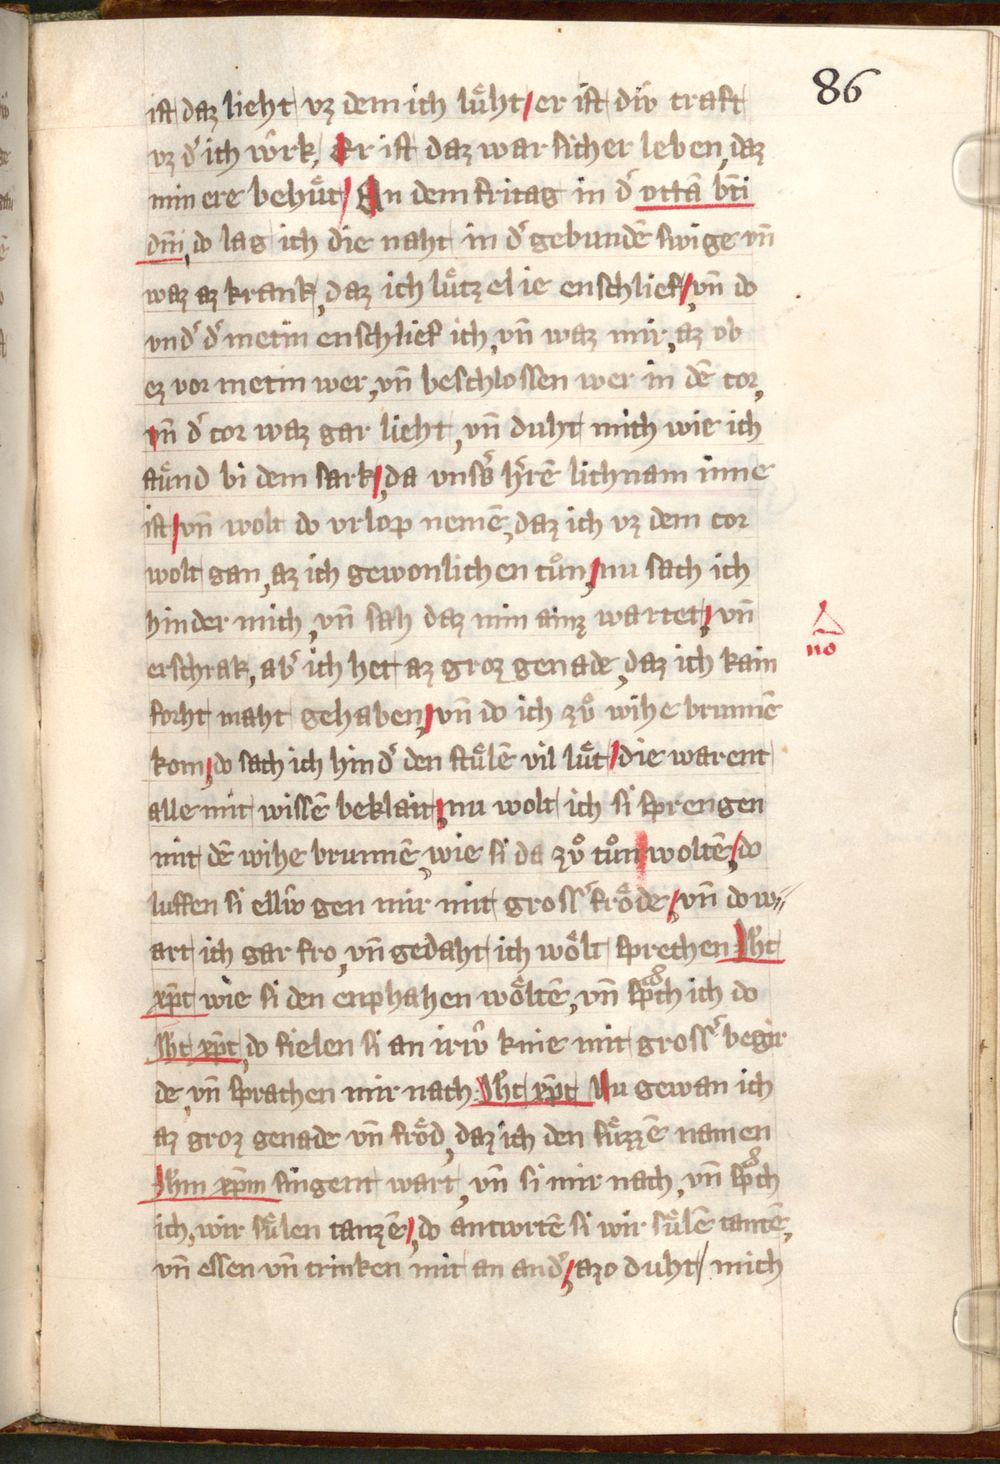 86
ist daz lieht vz dem ich lúht / er ist div craft
vz dˢ ich wrk, Er ist daz war sicher leben, daz
min ere behuͤt / An dem fritag in dˢ ottā bt̄i
dn̄i, do lag ich die naht in dˢ gebundē swige vn̄
waz az krank, daz ich lútzel ie enschlief / vn̄ do
vndˢ dˢ metin enschlief ich, vn̄ waz mir, az ob
ez vor metin wer, vn̄ beschlossen wer in dē cor,
vn̄ dˢ cor waz gar lieht, vn̄ duht mich wie ich
stuͤnd bi dem sark / da vnsˢs hˢrē lichnam inne
ist / vn̄ wolt do vrlop nemē, daz ich vz dem cor
wolt gan, az ich gewonlichen tuͦn / nu sach ich
hinder mich, vn̄ sah daz min ainz wartet / vn̄
erschrak, abˢ ich het az groz genade, daz ich kain
no
forht maht gehaben / vn̄ do ich zuͦ wihe brunnē
kom / do sach ich hindˢ den stuͤlē vil lút / die warent
alle mit wissē beklait / nu wolt ich si sprengen
mit dē wihe brunnē, wie si da zuͦ tuͦn woltē / do
luffen si elliv gen mir mit grossˢ froͤde / vn̄ do w//
art ich gar fro, vn̄ gedaht ich woͤlt sprechen Jh̄c
xp̄c wie si den enphahen woͤltē, vn̄ spᵃch ich do
Jh̄c xp̄c, do fielen si an iriv knie mit grossˢ begir
de, vn̄ sprachen mir nach Jh̄c xp̄c Nu gewan ich
az groz genade vn̄ froͤd, daz ich den suͤzzē namen
Jhm xp̄m singent wart, vn̄ si mir nach, vn̄ spᵃch
ich, wir súlen tanzē / do antwrtē si wir súlē tantē,
vn̄ essen vn̄ trinken mit an andˢ / azo duht / mich